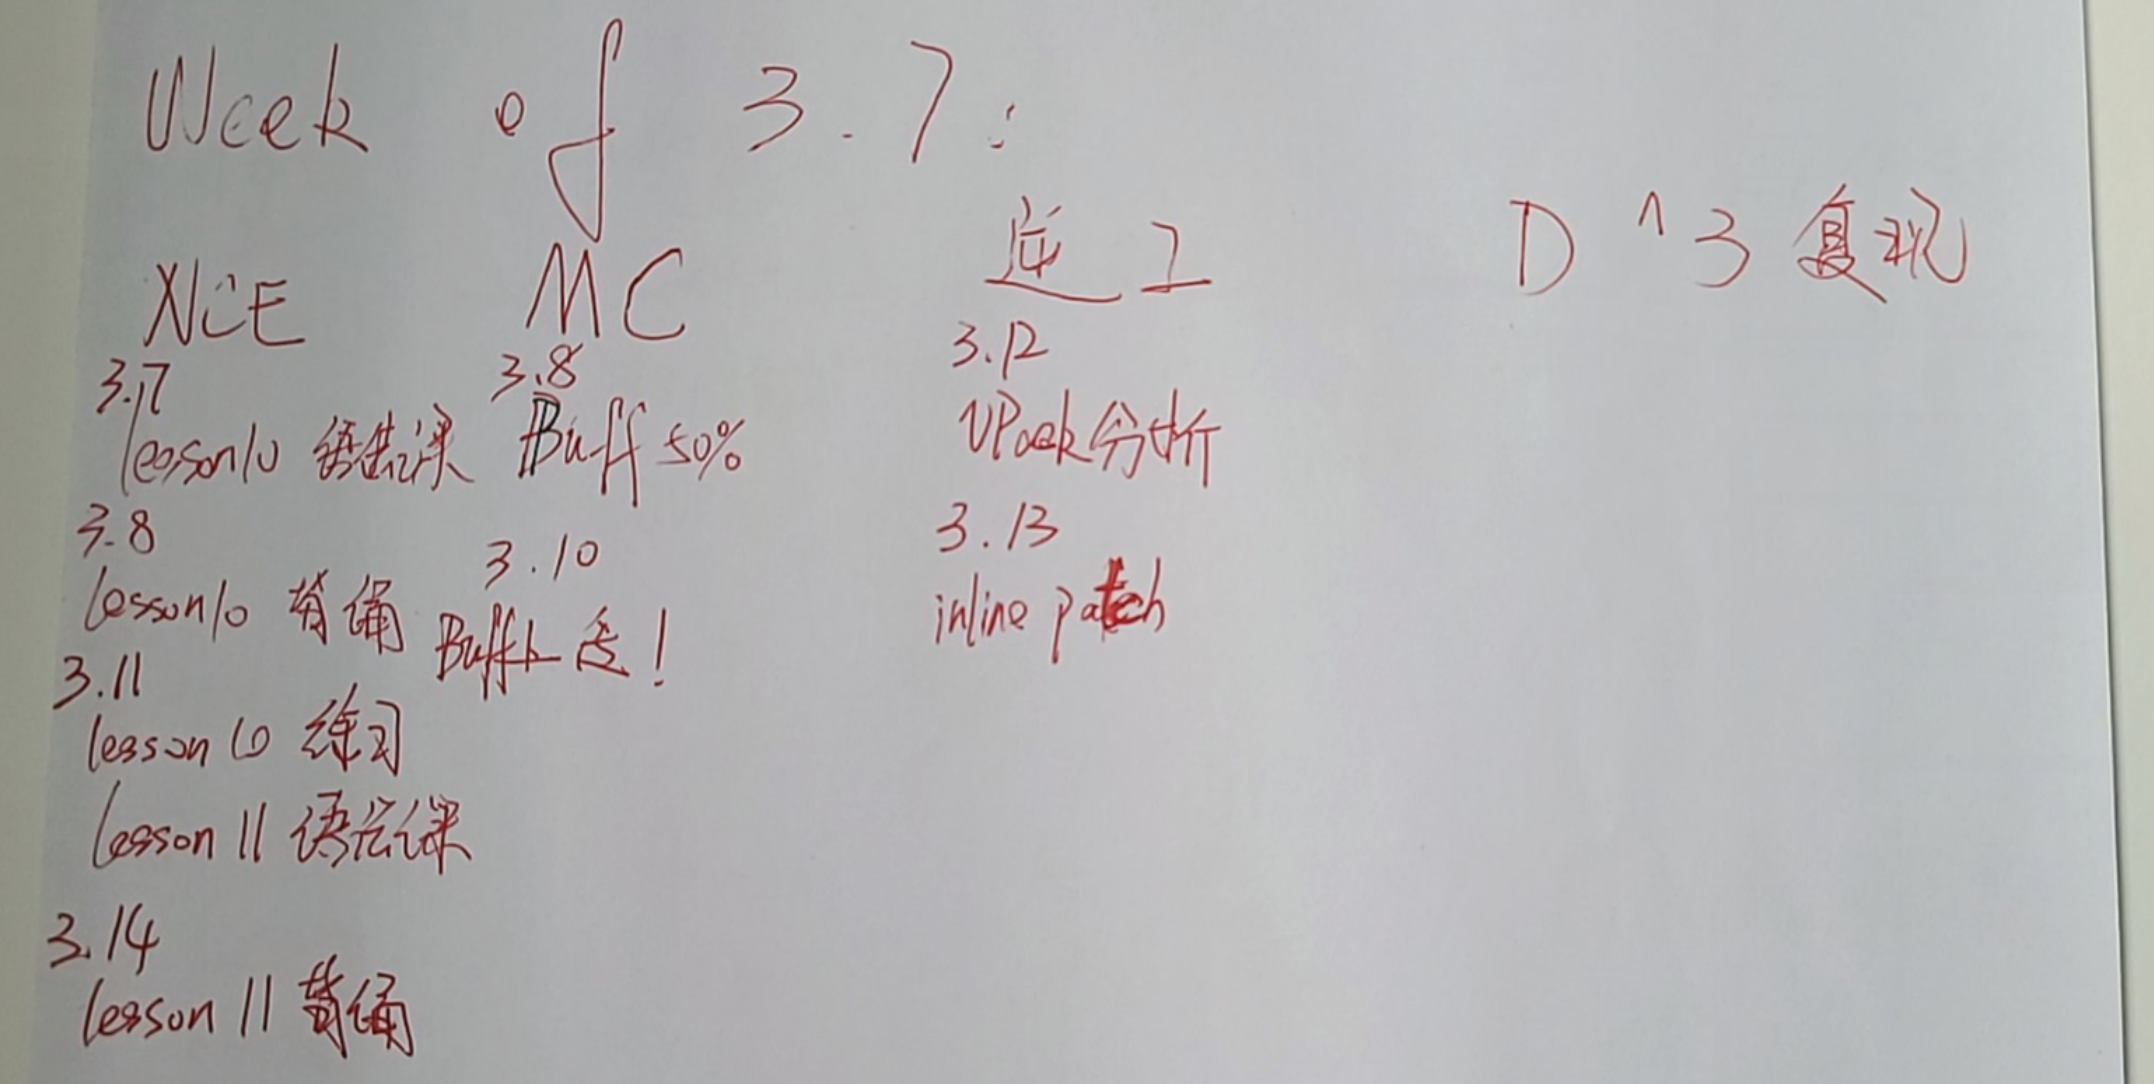 Week of 3.7:
NCE
3.7
lesson10 语法课
3.8
lesson10 背诵
3.11
lesson 10 练习
lesson 11 语法课
3.14
lesson 11 背诵
MC
3.8
Buff 50%
3.10
Buff
!
逆工
3.12
UPack分析
3.13
inline patch
D^3复现